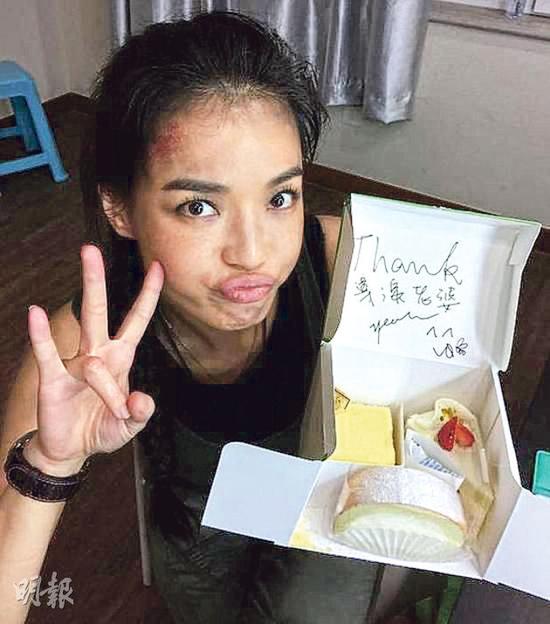 Thank
導演老婆
yeah ^^
明報